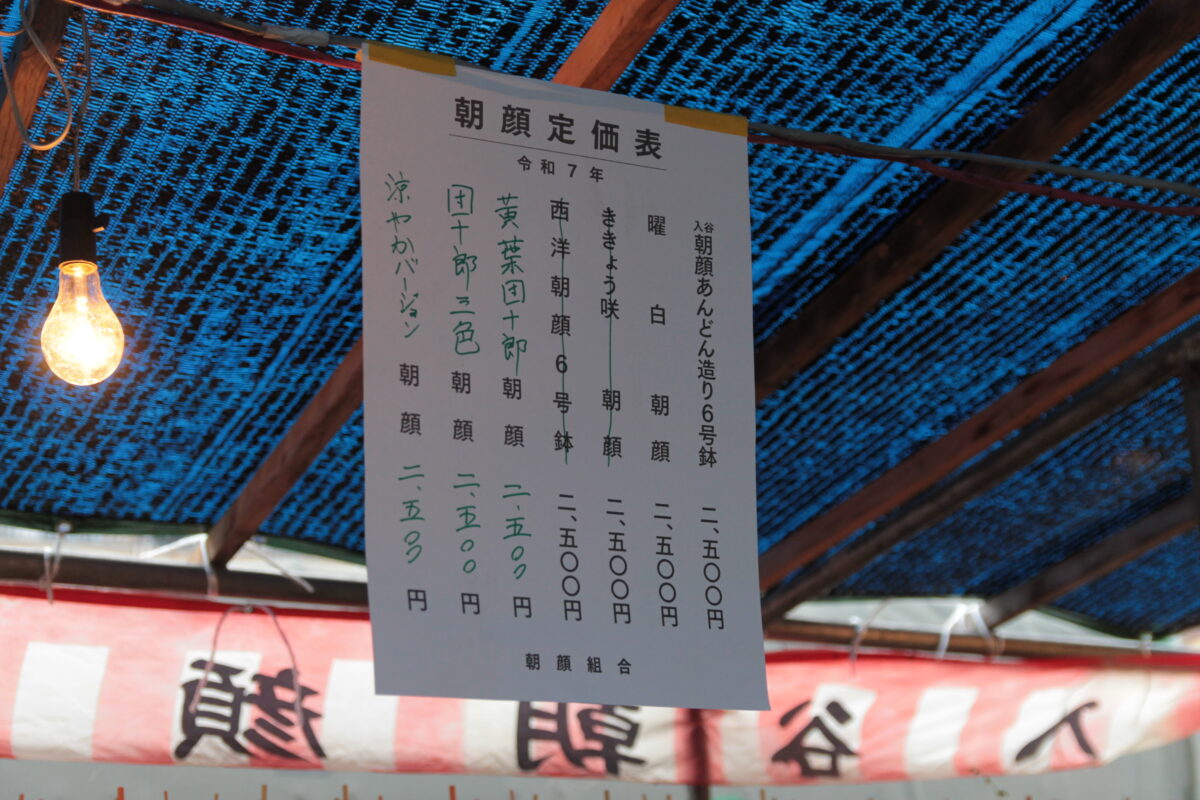 朝顔定価表
令和7年
入谷朝顔あんどん造り6号鉢 二、五〇〇円
曜白朝顔 二、五〇〇円
ききょう咲朝顔 二、五〇〇円
西洋朝顔6号鉢 二、五〇〇円
黄葉団十郎朝顔 二、五〇〇円
団十郎三色朝顔 二、五〇〇円
涼やかバージョン朝顔 二、五〇〇円
朝顔組合
入谷朝顔